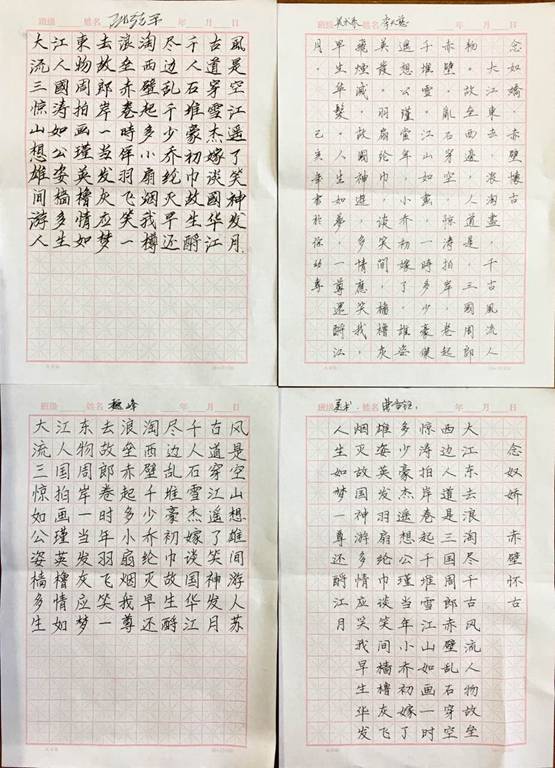 班级 姓名 年 月 日
大江東去浪淘尽千古風
流人物故垒西边人道是
三國周郎赤壁乱石穿空
惊涛拍岸卷起千堆雪江
山如画一時多少豪杰遥
想公瑾当年小乔初嫁了
雄姿英发羽扇纶巾談笑
间樯櫓灰飞烟灭故國神
游多情应笑我早生华发
人生如梦一樽还酹江月
班级 姓名 年 月 日
念奴嬌 赤壁懷古
大江東去，浪淘盡，千古風流人
物。故垒西邊，人道是，三國周郎
赤壁。亂石穿空，惊涛拍岸，卷起
千堆雪。江山如畫，一時多少豪傑
遥想公瑾當年，小喬初嫁了，雄姿
英發。羽扇綸巾，談笑間樯櫓灰
飛煙滅。故國神遊，多情應笑我
早生华髮。人生如夢，一尊還酹江
月。己亥年書於
班级 姓名 魏峰 年 月 日
大江东去浪淘尽千古风
流人物故垒西边人道是
三国周郎赤壁乱石穿空
惊拍岸卷起千堆雪江山
如画一时多少豪杰遥想
公瑾当年小乔初嫁了雄
姿英发羽扇纶巾谈笑间
樯橹灰飞烟灭故国神游
多情应笑我早生华发人
生如梦一尊还酹江月苏
班级 姓名 年 月 日
念奴娇 赤壁怀古
大江东去浪淘尽千古风流人物故垒
西边人道是三国周郎赤壁乱石穿空
惊涛拍岸卷起千堆雪江山如画一时
多少豪杰遥想公瑾当年小乔初嫁了
雄姿英发羽扇纶巾谈笑间樯橹灰飞
烟灭故国神游多情应笑我早生华发
人生如梦一尊还酹江月